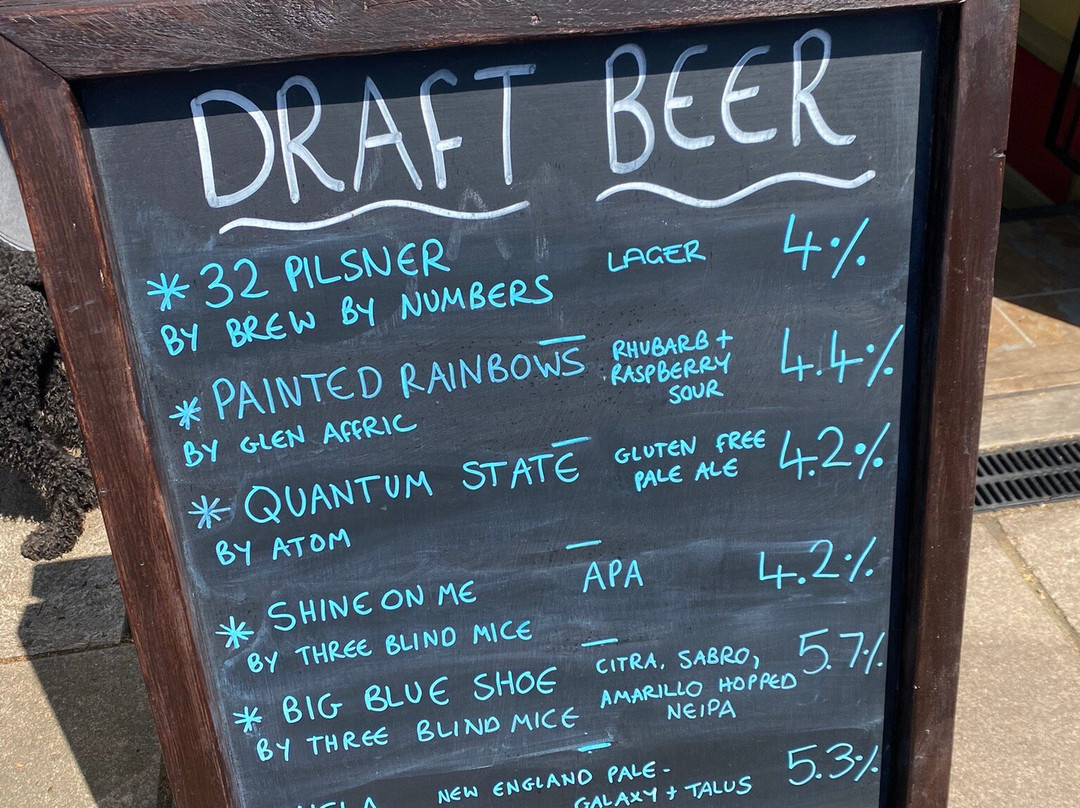 DRAFT BEER
* 32 PILSNER LAGER 4%
BY BREW BY NUMBERS
* PAINTED RAINBOWS RHUBARB + RASPBERRY SOUR 4.4%
BY GLEN AFFRIC
* QUANTUM STATE GLUTEN FREE PALE ALE 4.2%
BY ATOM
* SHINE ON ME APA 4.2%
BY THREE BLIND MICE
* BIG BLUE SHOE CITRA, SABRO, AMARILLO HOPPED NEIPA 5.7%
BY THREE BLIND MICE
NEW ENGLAND PALE - 5.3%
GALAXY + TALUS